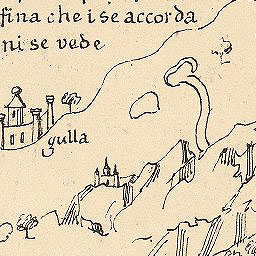 fina che i se accorda
ni se vede
gulla